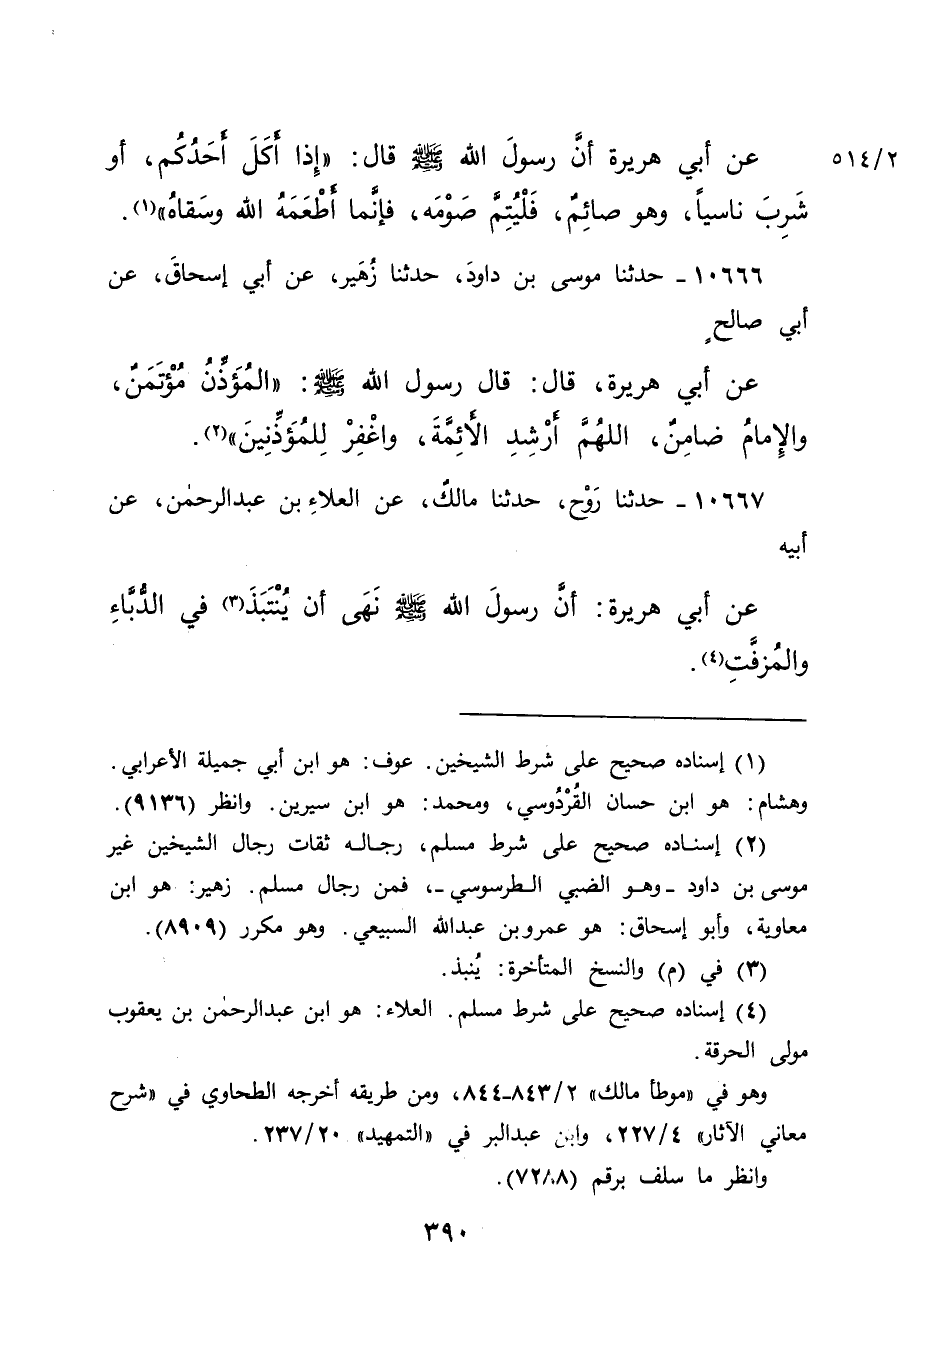 عن أبي هريرة أنَّ رسولَ الله ﷺ قال: «إِذا أَكَلَ أَحَدُكُم، أو ٥١٤/٢
شَرِبَ ناسياً، وهو صائِمٌ، فَلْيُتِمَّ صَوْمَه، فإنَّما أَطْعَمَهُ الله وسَقاهُ»(١).
١٠٦٦٦ ـ حدثنا موسى بن داودَ، حدثنا زُهَير، عن أبي إسحاقَ، عن
أبي صالحٍ
عن أبي هريرة، قال: قال رسول الله ﷺ: «المُؤَذِّنُ مُؤْتَمَنٌ،
والإِمامُ ضامِنٌ، اللهُمَّ أَرْشِدِ الأَئِمَّةَ، واغْفِرْ لِلمُؤَذِّنِينَ»(٢).
١٠٦٦٧ ـ حدثنا رَوْح، حدثنا مالكٌ، عن العلاءِ بن عبدالرحمٰن، عن
أبيه
عن أبي هريرة: أنَّ رسولَ الله ﷺ نَهَى أن يُنْتَبَذَ(٣) في الدُّبَّاءِ
والمُزفَّتِ(٤).
(١) إسناده صحيح على شرط الشيخين. عوف: هو ابن أبي جميلة الأعرابي.
وهشام: هو ابن حسان القُرْدُوسي، ومحمد: هو ابن سيرين. وانظر (٩١٣٦).
(٢) إسناده صحيح على شرط مسلم، رجاله ثقات رجال الشيخين غير
موسى بن داود ـ وهو الضبي الطرسوسي ـ، فمن رجال مسلم. زهير: هو ابن
معاوية، وأبو إسحاق: هو عمرو بن عبدالله السبيعي. وهو مكرر (٨٩٠٩).
(٣) في (م) والنسخ المتأخرة: يُنبذ.
(٤) إسناده صحيح على شرط مسلم. العلاء: هو ابن عبدالرحمٰن بن يعقوب
مولى الحرقة.
وهو في «موطأ مالك» ٨٤٣/٢ـ٨٤٤، ومن طريقه أخرجه الطحاوي في «شرح
معاني الآثار» ٢٢٧/٤، وابن عبدالبر في «التمهيد» ٢٣٧/٢٠.
وانظر ما سلف برقم (٧٢٨٨).
٣٩٠